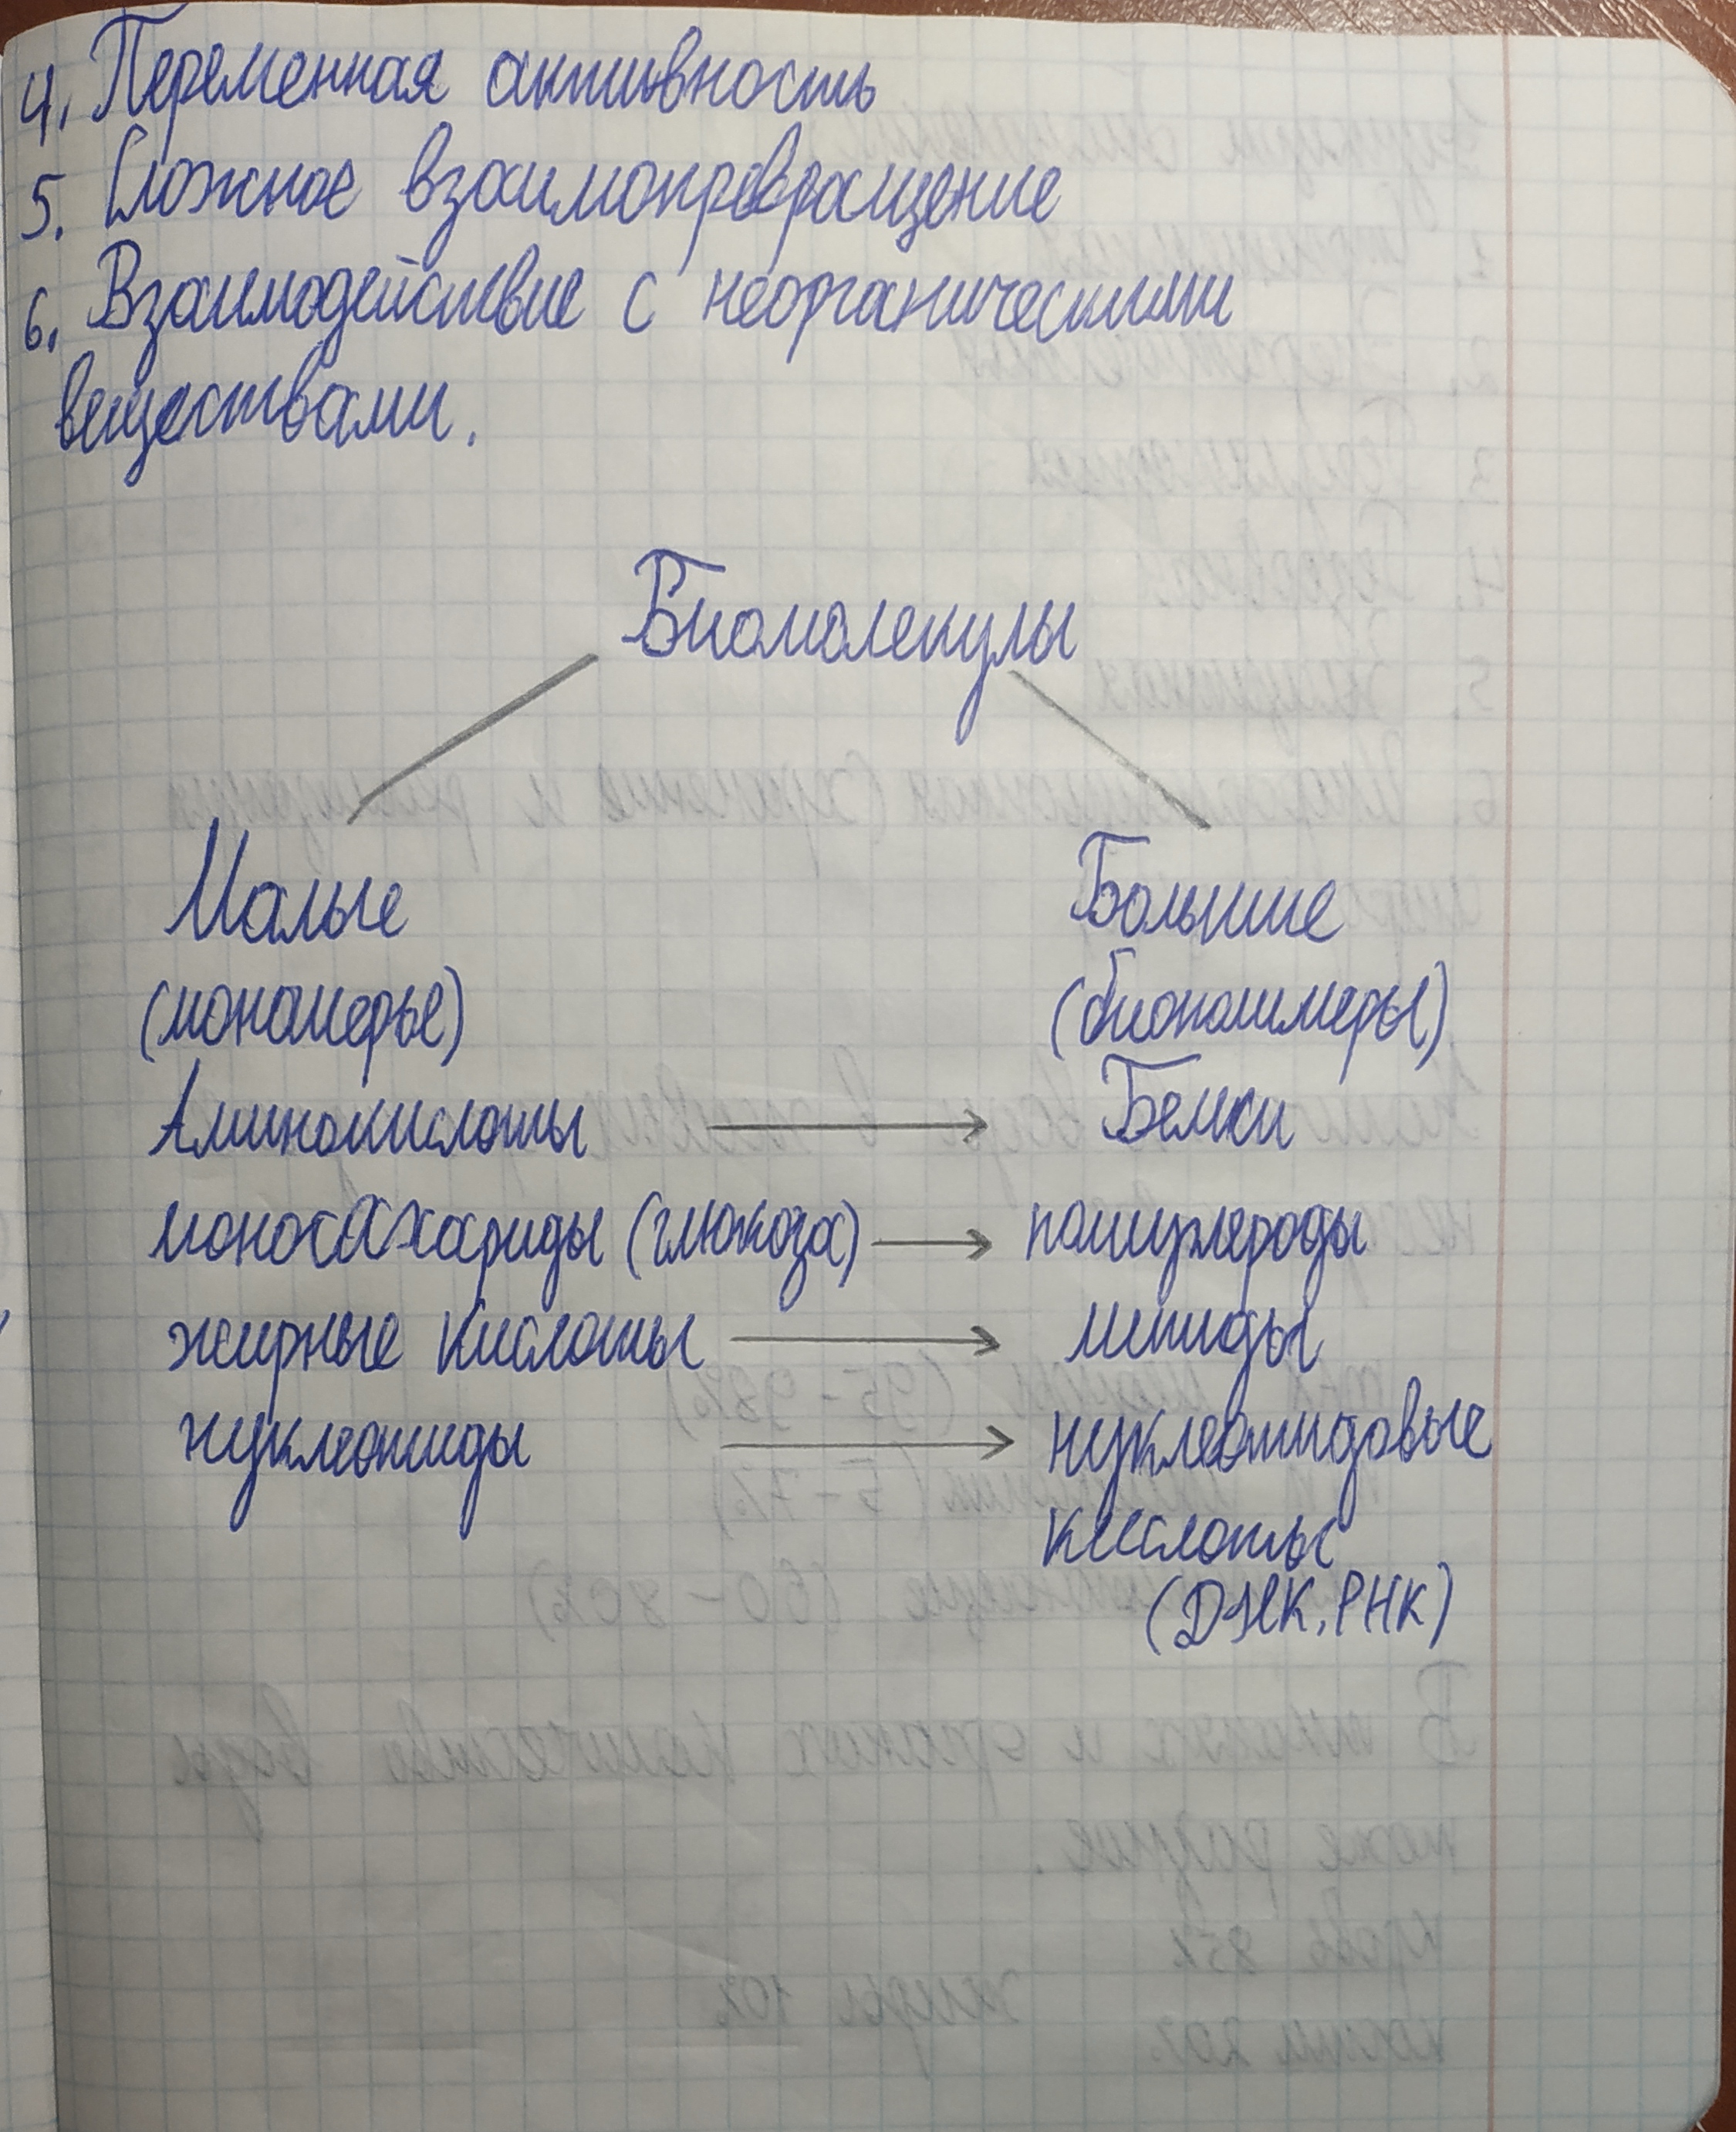 4. Переменная активность
5. Сложное взаимопревращение
6. Взаимодействие с неорганическими
веществами.
Биомолекулы
Малые Большие
(мономеры) (биополимеры)
Аминокислоты → Белки
моносахариды (глюкоза) → полиуглероды
жирные кислоты → липиды
нуклеотиды → нуклеотидовые
кислоты
(ДНК, РНК)